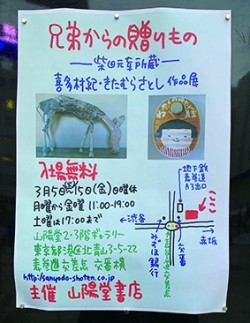 兄弟からの贈りもの
―柴田元幸所蔵―
喜多村紀・きたむらさとし 作品展
入場無料
3月5日 15日(金)日曜休
月曜から金曜 11:00-19:00
土曜は17:00まで
山陽堂2・3階ギャラリー
東京都港区北青山3-5-22
表参道交差点 交番横
http://sanyodo-shoten.co.jp
主催 山陽堂書店
地下鉄
表参道
A3出口
ここ
交番
渋谷
赤坂
みずほ銀行
表参道交差点